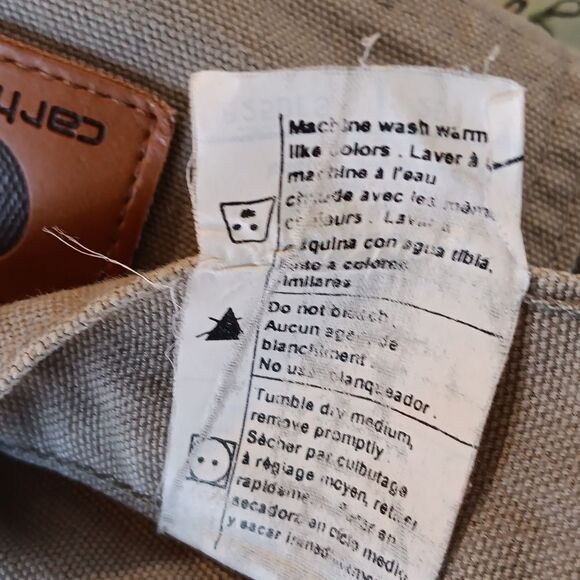 carh
Machine wash warm
like colors . Laver à
machine à l'eau
chaude avec les mêm
couleurs . Lavar a
máquina con agua tíbia,
junto a colores
similares
Do not bleach .
Aucun agent de
blanchiment .
No use blanqueador .
Tumble dry medium,
remove promptly
Sècher par culbutage
à règlage moyen, retirer
rapidement
secadora en ciclo medio
y sacar